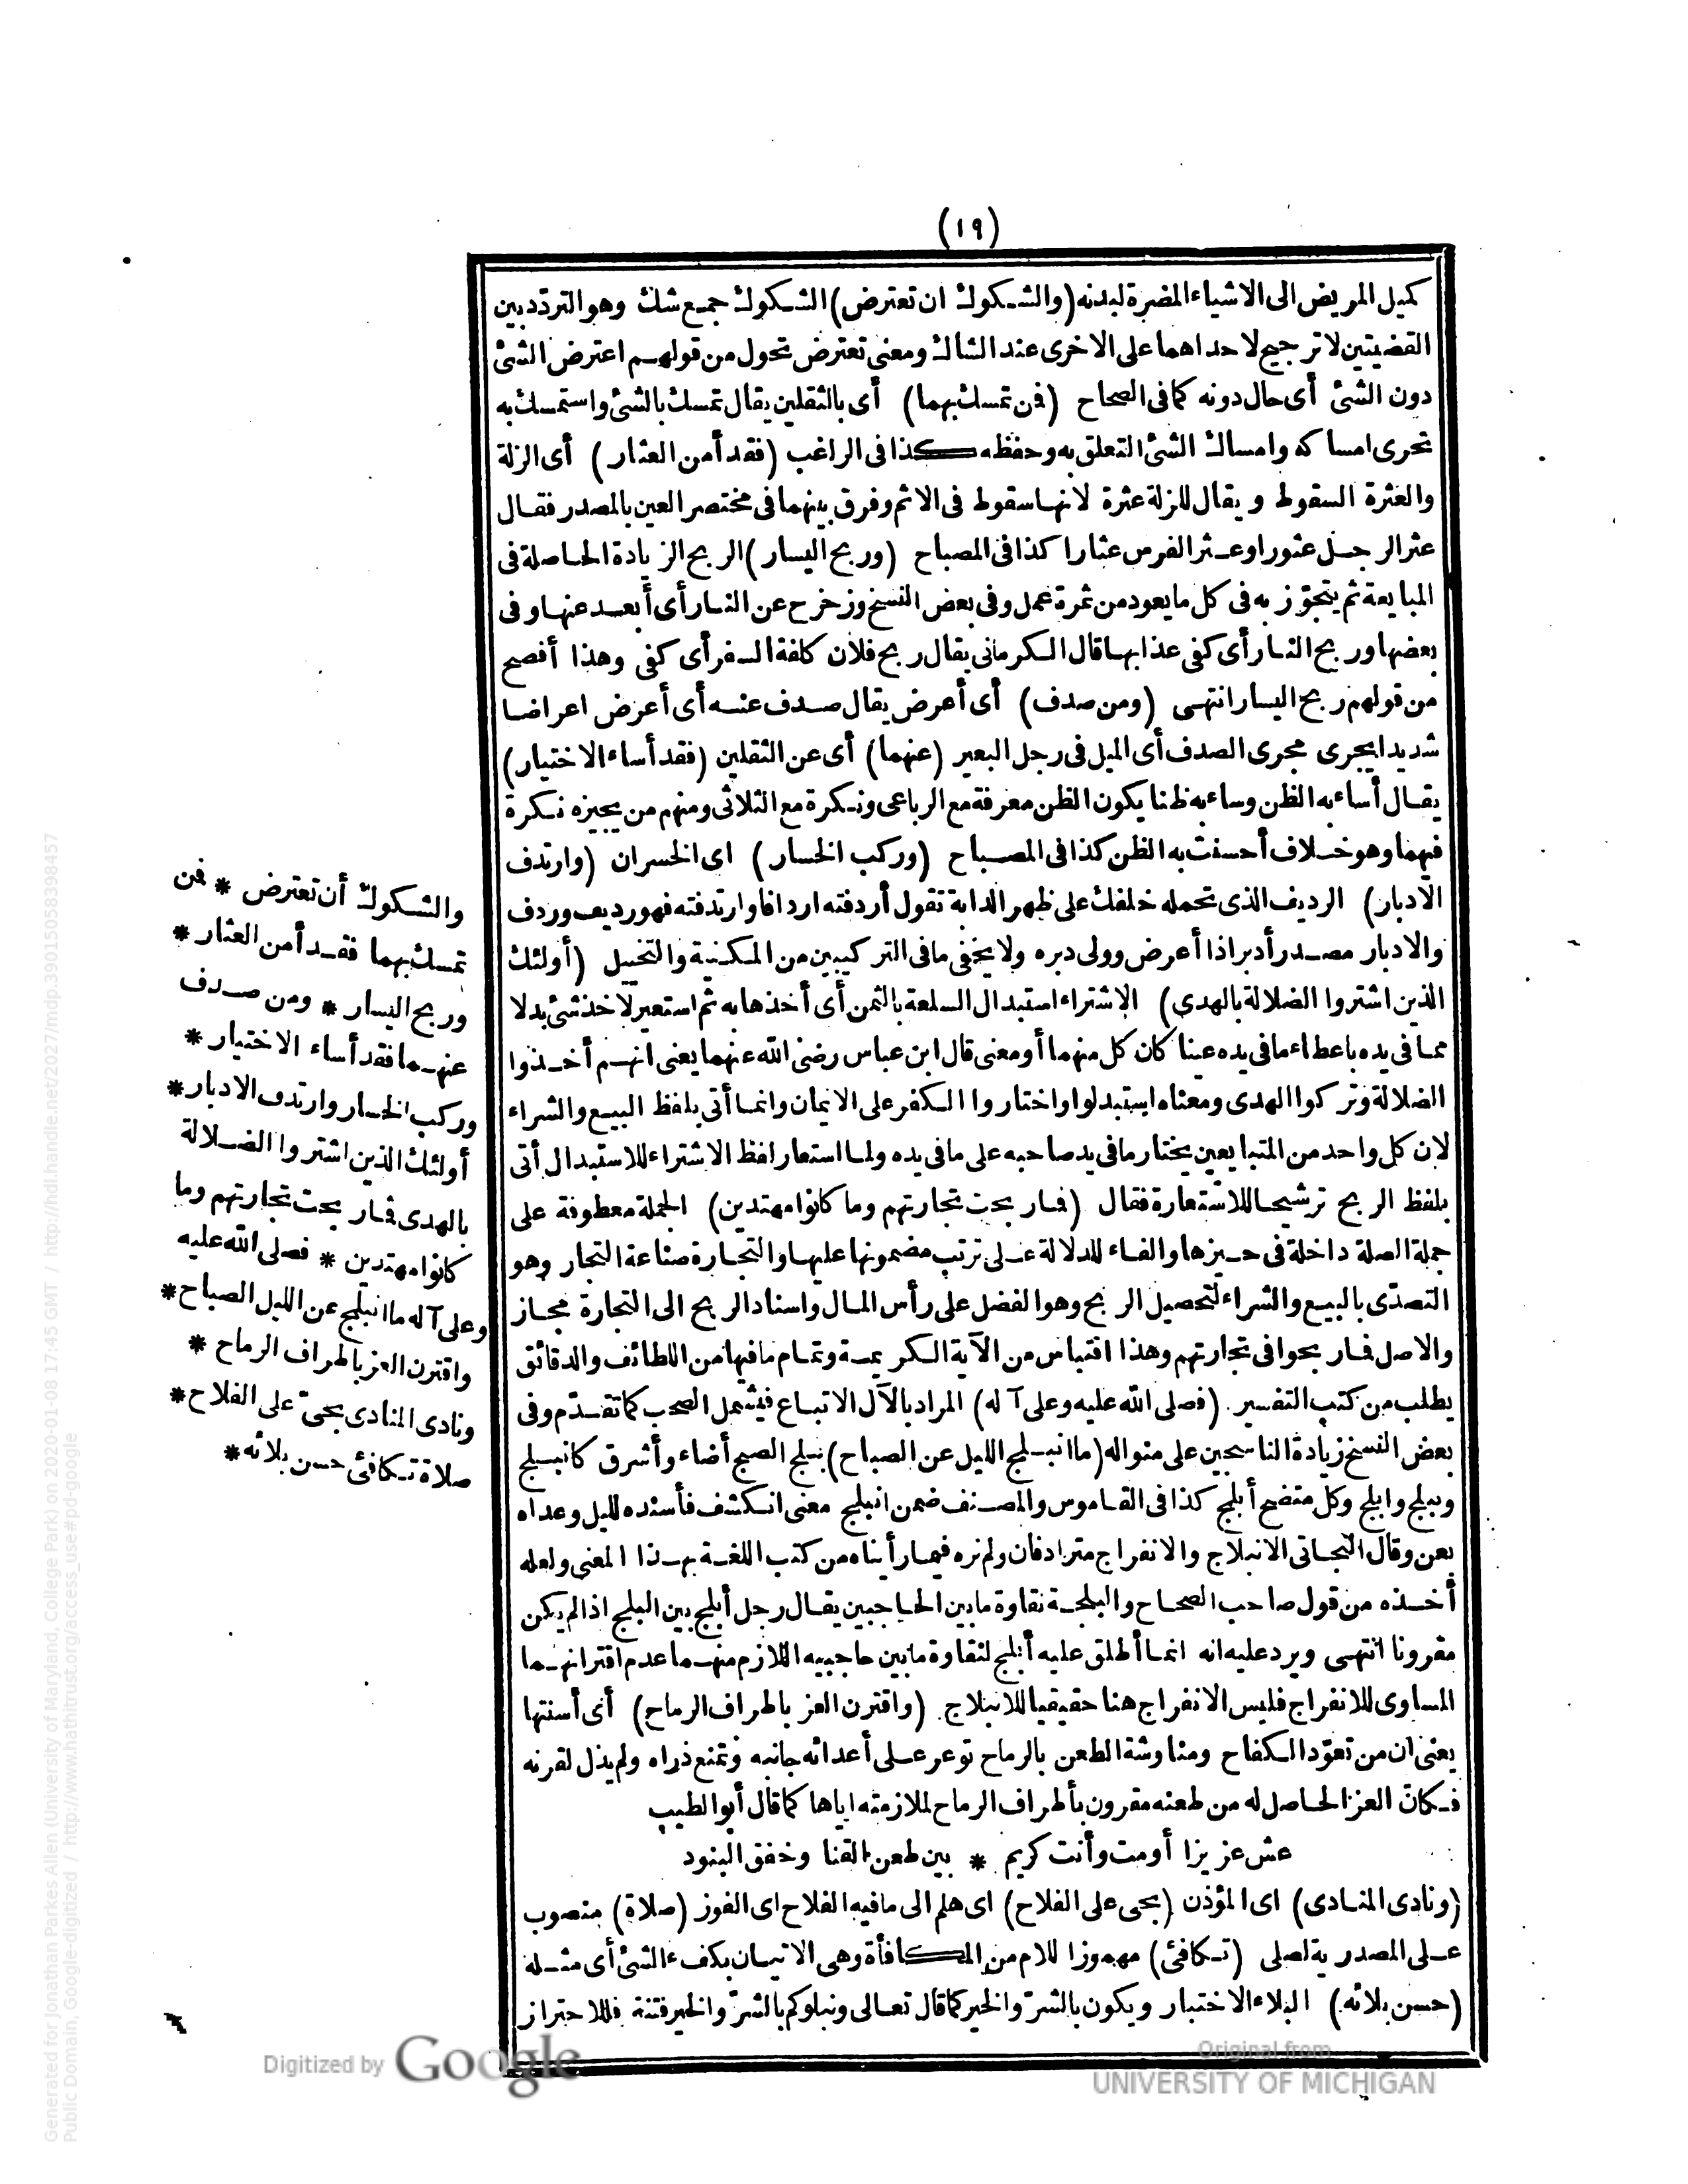 (١٩)
كميل المريض الى الاشياء المضرة لبدنه (والشكوك ان تعترض) الشكوك جمع شك وهو التردّد بين
القضيتين لا ترجيح لاحداهما على الاخرى عند الشاك ومعنى تعترض تحول من قولهم اعترض الشئ
دون الشئ أى حال دونه كما فى الصحاح (فمن تمسك بهما) أى بالثقلين يقال تمسك بالشئ واستمسك به
تحرى امساكه وامساك الشئ التعلق به وحفظه كذا فى الراغب (فقد أمن العثار) أى الزلة
والعثرة السقوط ويقال للزلة عثرة لانها سقوط فى الاثم وفرق بينهما فى مختصر العين بالمصدر فقال
عثر الرجل عثورا وعثر الفرس عثارا كذا فى المصباح (وربح اليسار) الربح الزيادة الحاصلة فى
المبايعة ثم يتجوّز به فى كل ما يعود من ثمرة عمل وفى بعض النسخ وزحزح عن النار أى أبعد عنها وفى
بعضها وربح النار أى كفى عذابها قال الكرمانى يقال ربح فلان كلفة السفر أى كفى وهذا أفصح
من قولهم ربح اليسار انتهى (ومن صدف) أى أعرض يقال صدف عنه أى أعرض اعراضا
شديدا يجرى مجرى الصدف أى الميل فى رجل البعير (عنهما) أى عن الثقلين (فقد أساء الاختيار)
يقال أساء به الظن وساء به ظنا يكون الظن معرفة مع الرباعى ونكرة مع الثلاثى ومنهم من يجيزه نكرة
فيهما وهو خلاف أحسنت به الظن كذا فى المصباح (وركب الخسار) اى الخسران (وارتدف
الادبار) الرديف الذى تحمله خلفك على ظهر الدابة تقول أردفته اردافا وارتدفته فهو رديف وردف
والادبار مصدر أدبر اذا أعرض وولى دبره ولا يخفى ما فى التركيبين من المكنية والتخييل (أولئك
الذين اشتروا الضلالة بالهدى) الاشتراء استبدال السلعة بالثمن أى أخذها به ثم استعير لاخذ شئ بدلا
مما فى يده باعطاء ما فى يده عينا كان كل منهما أو معنى قال ابن عباس رضى الله عنهما يعنى انهم أخذوا
الضلالة وتركوا الهدى ومعناه استبدلوا واختاروا الكفر على الايمان وانما أتى بلفظ البيع والشراء
لان كل واحد من المتبايعين يختار ما فى يد صاحبه على ما فى يده ولما استعار لفظ الاشتراء للاستبدال أتى
بلفظ الربح ترشيحا للاستعارة فقال (فما ربحت تجارتهم وما كانوا مهتدين) الجملة معطوفة على
جملة الصلة داخلة فى حيزها والفاء للدلالة على ترتب مضمونها عليها والتجارة صناعة التجار وهو
التصدّى بالبيع والشراء لتحصيل الربح وهو الفضل على رأس المال واسناد الربح الى التجارة مجاز
والاصل فما ربحوا فى تجارتهم وهذا اقتباس من الآية الكريمة وتمام ما فيها من اللطائف والدقائق
يطلب من كتب التفسير (فصلى الله عليه وعلى آله) المراد بالآل الاتباع فيشمل الصحب كما تقدّم وفى
بعض النسخ زيادة الناسجين على منواله (ما انبلج الليل عن الصباح) بلج الصبح أضاء وأشرق كانبلج
وبلج وابلج وكل متضح أبلج كذا فى القاموس والمصنف ضمن انبلج معنى انكشف فأسنده لليل وعداه
بعن وقال النجاتى الانبلاج والانفراج مترادفان ولم نره فيما رأيناه من كتب اللغة بهذا المعنى ولعله
أخذه من قول صاحب الصحاح والبلجة نقاوة ما بين الحاجبين يقال رجل أبلج بين البلج اذا لم يكن
مقرونا انتهى ويرد عليه انه انما أطلق عليه أبلج لنقاوة ما بين حاجبيه اللازم منهما عدم اقترانهما
المساوى للانفراج فليس الانفراج هنا حقيقيا للانبلاج (واقترن العز باطراف الرماح) أى أسنتها
يعنى ان من تعوّد الكفاح ومناوشة الطعن بالرماح توعر على أعدائه جانبه وتمنع ذراه ولم يذل لقرنه
فكان العز الحاصل له من طعنه مقرون بأطراف الرماح لملازمته اياها كما قال أبو الطيب
عش عزيزا أو مت وأنت كريم * بين طعن القنا وخفق البنود
(ونادى المنادى) اى المؤذن (بحى على الفلاح) اى هلم الى ما فيه الفلاح اى الفوز (صلاة) منصوب
على المصدرية لصلى (تكافئ) مهموزا للام من المكافأة وهى الاتيان بكفء الشئ أى مثله
(حسن بلائه) البلاء الاختبار ويكون بالشرّ والخير كما قال تعالى ونبلوكم بالشرّ والخير فتنة فللاحتراز
والشكوك أن تعترض * فمن
تمسك بهما فقد أمن العثار *
وربح اليسار * ومن صدف
عنهما فقد أساء الاختيار *
وركب الخسار وارتدف الادبار *
أولئك الذين اشتروا الضلالة
بالهدى فما ربحت تجارتهم وما
كانوا مهتدين * فصلى الله عليه
وعلى آله ما انبلج عن الليل الصباح *
واقترن العز باطراف الرماح *
ونادى المنادى بحىّ على الفلاح *
صلاة تكافئ حسن بلائه *
Generated for Jonathan Parkes Allen (University of Maryland, College Park) on 2020-01-08 17:45 GMT / http://hdl.handle.net/2027/mdp.39015058398457
Public Domain, Google-digitized / http://www.hathitrust.org/access_use#pd-google
Digitized by Google
Original from
UNIVERSITY OF MICHIGAN